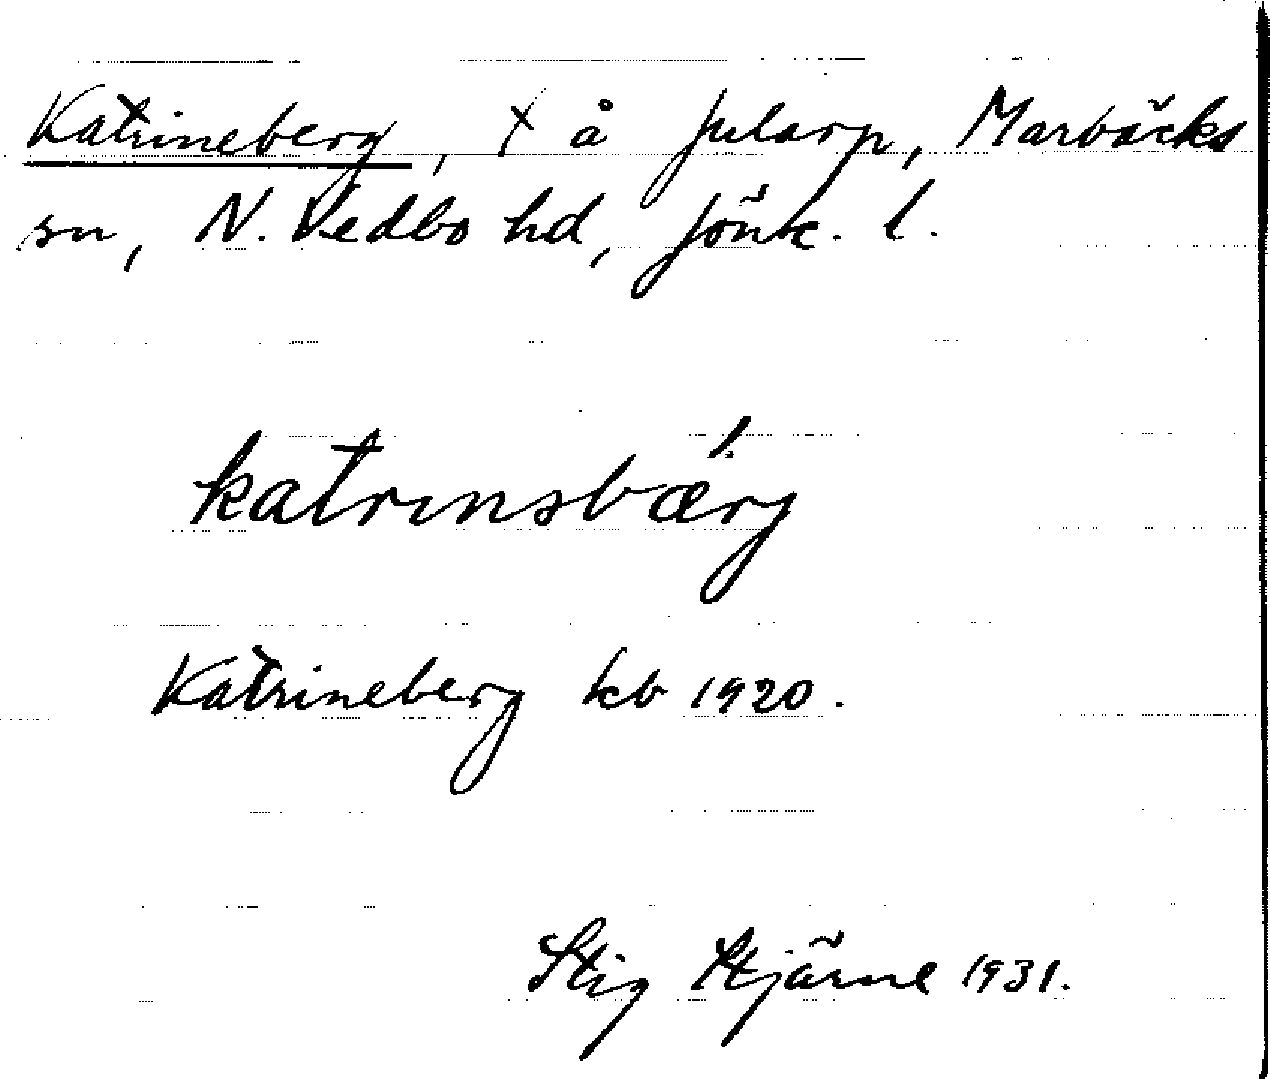 Katrineberg, † å Jularp, Marbäcks
sn, N. Vedbo hd, Jönk. l.
katrınsbæ̀rj
Katrineberg kb 1920.
Stig Stjärne 1931.